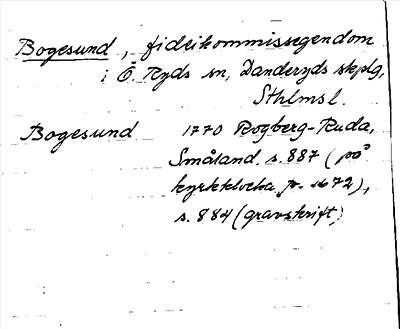 Bogesund, fideikommissegendom
i Ö. Ryds sn, Danderyds skplg,
Sthlmsl.
Bogesund 1770 Rogberg-Ruda,
Småland s. 887 (på
kyrkklocka fr. 1672),
s. 884 (gravskrift)